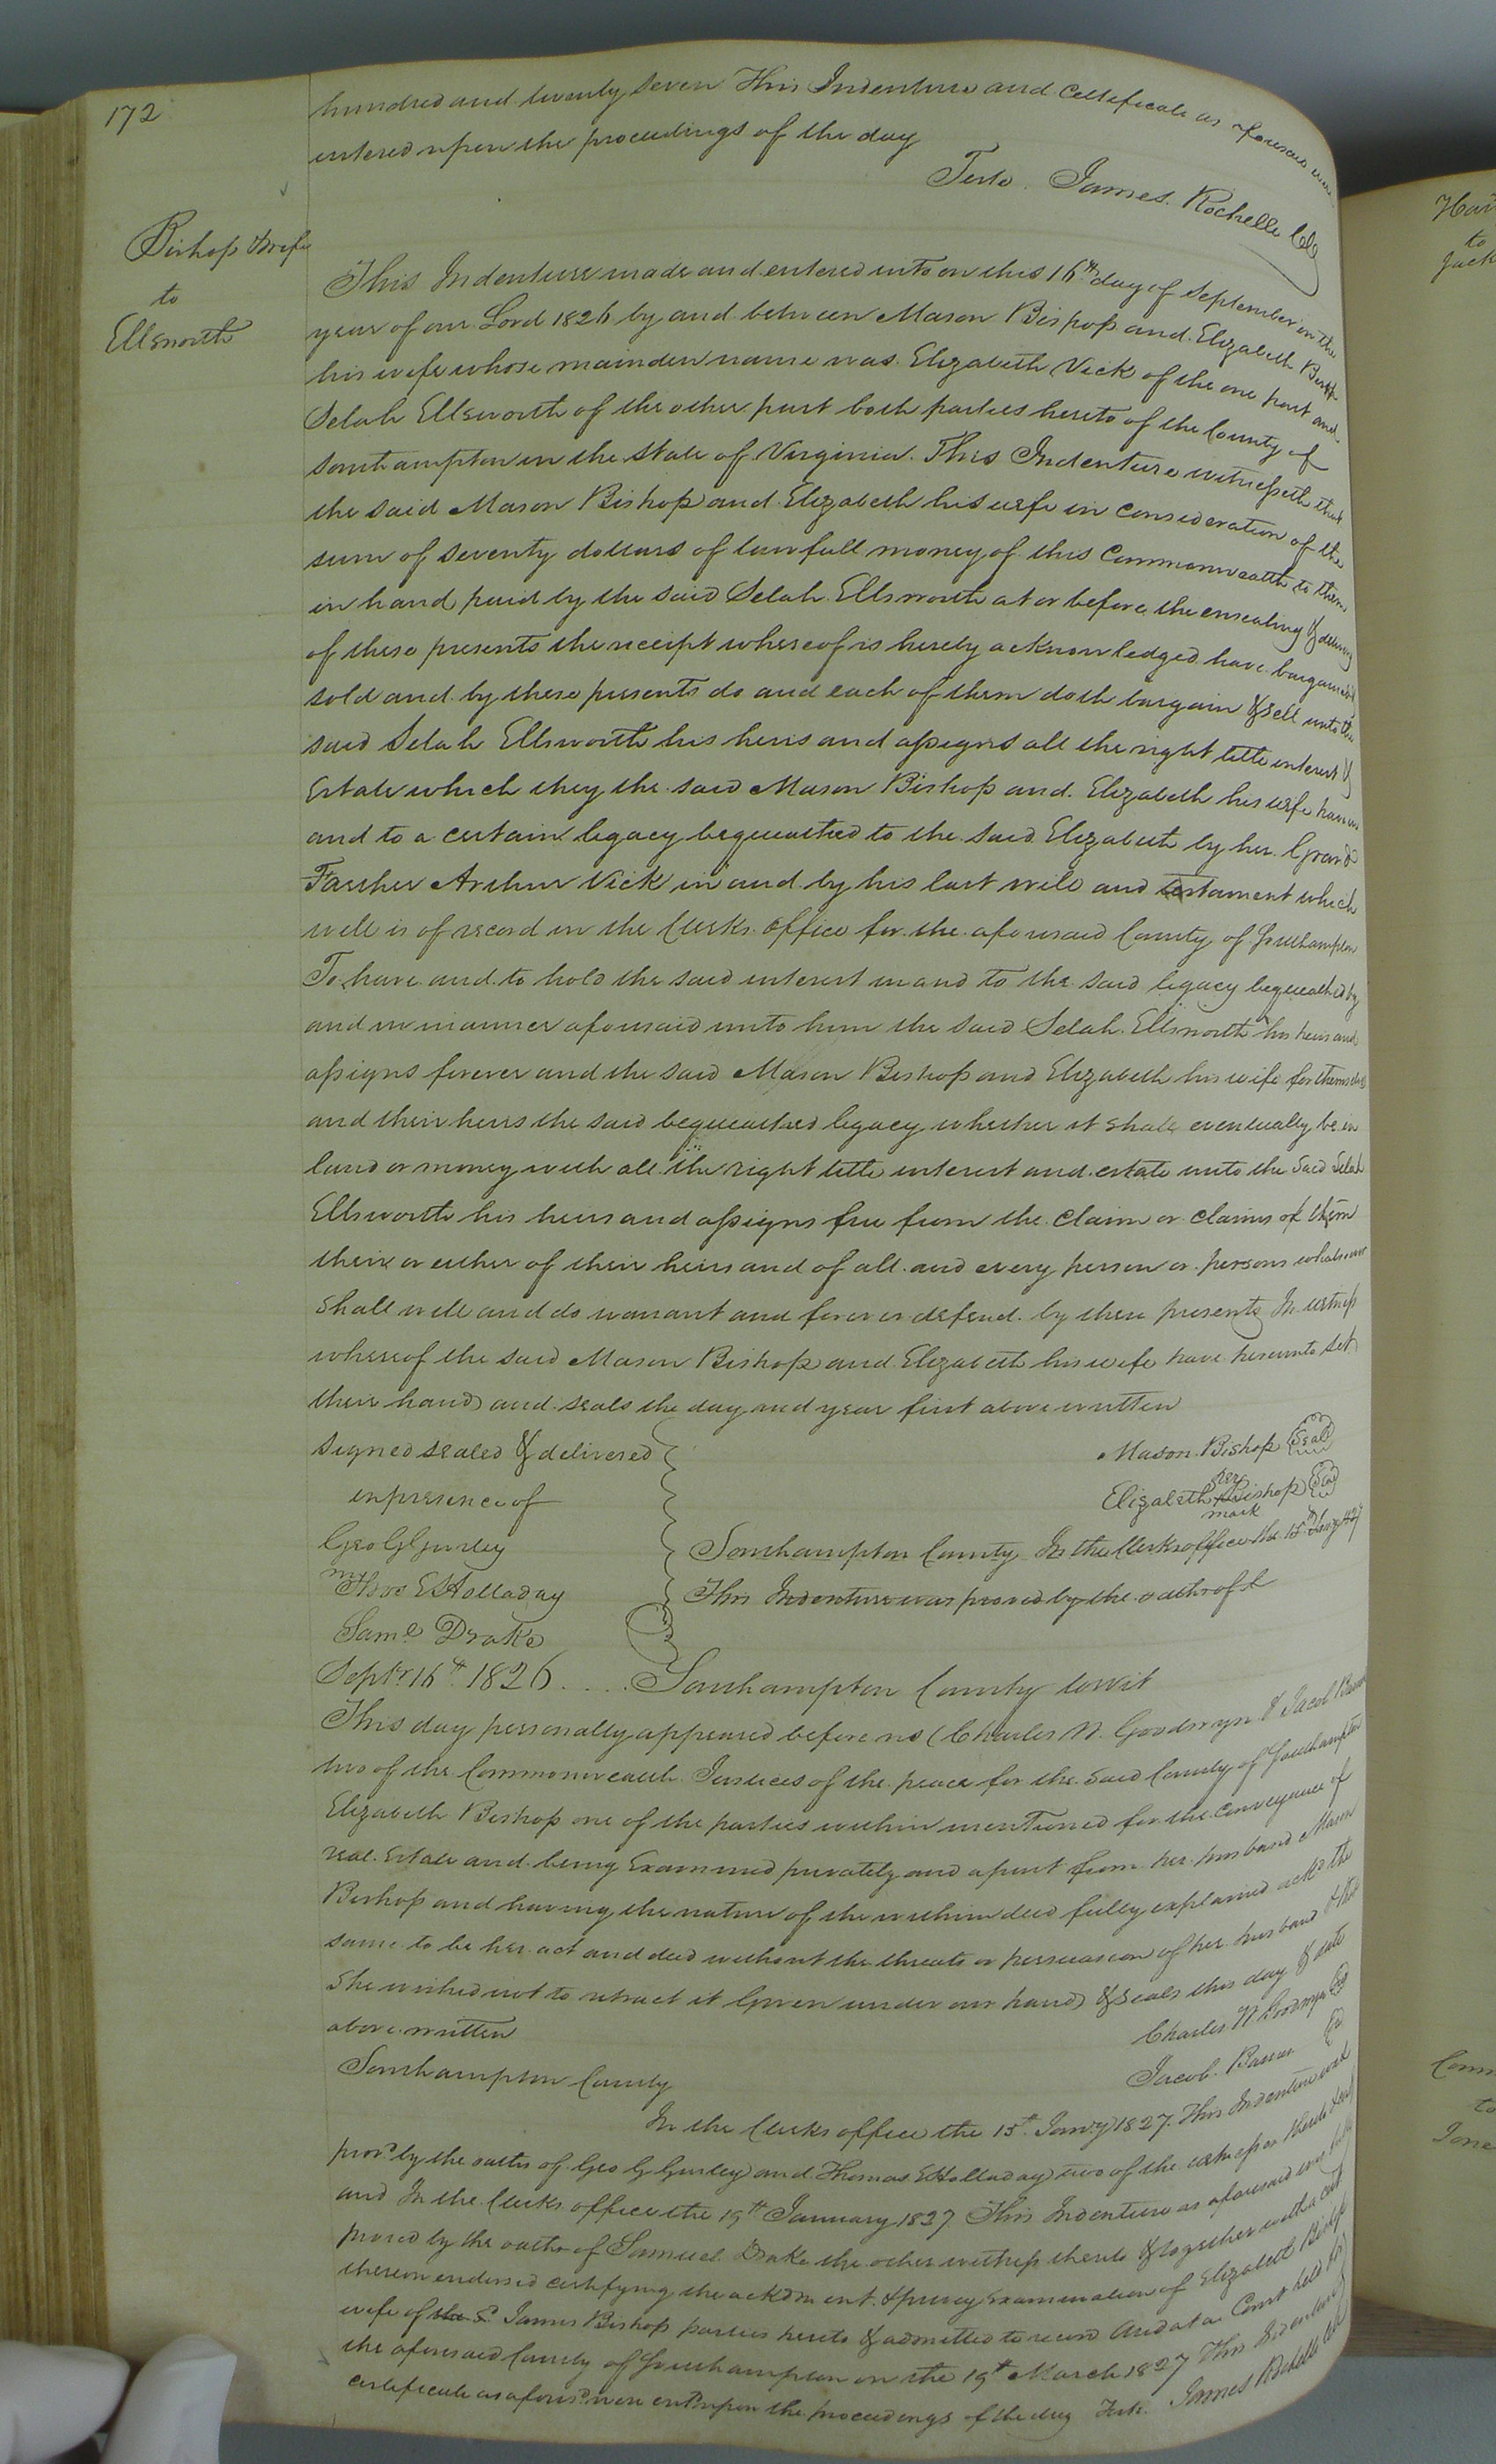 172
hundred and twenty seven This Indenture and Certificate as aforesaid were
entered upon the proceedings of the day
Teste. James Rochelle Clk
Bishop & wife
to
Ellsworth
This Indenture made and entered into on this 16th day of September in the
year of our Lord 1826 by and between Mason Bishop and Elizabeth
his wife whose mainden name was Elizabeth Vick of the one part and
Selah Ellsworth of the other part both parties hereto of the County of
Southampton in the State of Virginia. This Indenture witnesseth that
the said Mason Bishop and Elizabeth his wife in consideration of the
sum of seventy dollars of lawfull money of this Commonwealth to them
in hand paid by the said Selah Ellsworth at or before the ensealing & delivery
of these presents the receipt whereof is hereby acknowledged have bargained
sold and by these presents do and each of them doth bargain & sell unto the
said Selah Ellsworth his heirs and assigns all the right title interest &
Estate which they the said Mason Bishop and Elizabeth his wife have in
and to a certain legacy bequeathed to the said Elizabeth by her Grand
Farther Arthur Vick in and by his last will and testament which
will is of record in the Clerks office for the aforesaid County of Southampton
To have and to hold the said interest in and to the said legacy bequeathed by
and in manner aforesaid unto him the said Selah Ellsworth his heirs and
assigns forever and the said Mason Bishop and Elizabeth his wife for themselves
and their heirs the said bequeathed legacy whether it shall eventually be in
land or money with all the right title interest and estate unto the said Selah
Ellsworth his heirs and assigns free from the claim or claims of them
their or either of their heirs and of all and every person or persons whatsoever
shall will and do warrant and forever defend by these presents In witness
whereof the said Mason Bishop and Elizabeth his wife have hereunto set
their hands and seals the day and year first above written
Signed sealed & delivered
in presence of
Geo G Gurley
Thos E Holladay
Saml Drake
Mason Bishop Seal
her
Elizabeth Bishop Seal
mark
Southampton County In the Clerks office the 15th Jany 1827
This Indenture was proved by the oaths of
Septr 16th 1826 .... Southampton County towit
This day personally appeared before us (Charles N. Goodwyn & Jacob Barrow
two of the Commonwealth Justices of the peace for the said County of Southampton
Elizabeth Bishop one of the parties within mentioned for the conveyance of
real Estate and being Examined privately and apart from her husband Mason
Bishop and having the nature of the within deed fully explained ackd the
same to be her act and deed without the threats or persuasion of her husband & that
She wished not to retract it Given under our hands & seals this day & date
above written
Charles N Goodwyn
Jacob Barrow
Southampton County
In the Clerks office the 15th Jany 1827. This Indenture was
provd by the oaths of Geo G Gurley and Thomas E Holladay two of the witnesses thereto
and In the Clerks office the 19th January 1827 This Indenture as aforesaid was fully
proved by the oath of Samuel Drake the other witness thereto & together with a cert
thereon endorsed certifying the ackdment & privy Examination of Elizabeth Bishop
wife of the sd James Bishop parties hereto & admitted to record And at a Court held for
the aforesaid County of Southampton on the 19th March 1827 This Indenture &
certificate as aforesd were entd upon the proceedings of the day Teste. James Rochelle Clk
Har
to
Jack
Comm
to
Jone